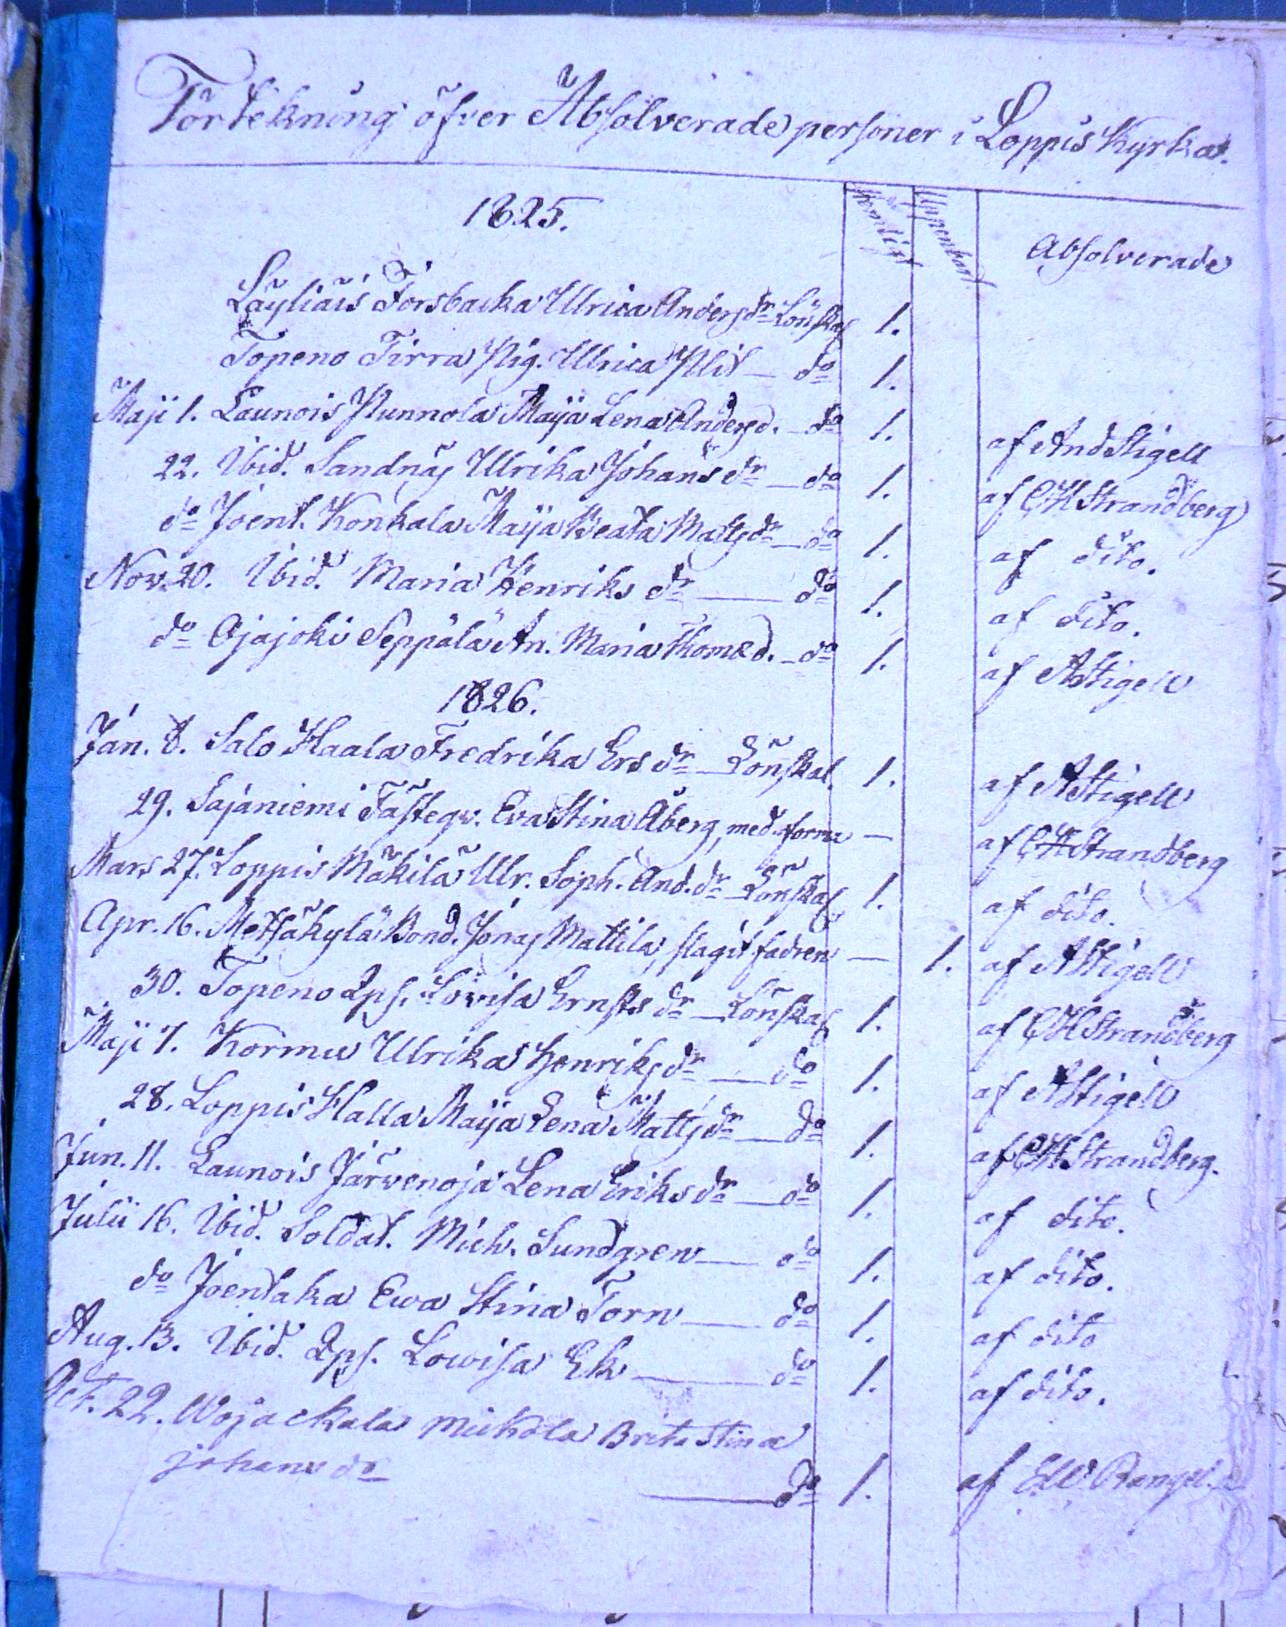 Förtekning öfver Absolverade personer i Loppis Kyrka.
1825. Hemligt Uppenbart Absolverade
Läyliäis Forsbacka Ulrica Andersdr Lönskal. 1.
Topeno Tirra Pig. Ulrica Plit do 1.
Maji 1. Launois Nunnola Maija Lena Andersd. do 1. af And Stigell
22. Ibid. Sandnäs Ulrika Johans dr do 1. af CH Strandberg
do Joent. Konkala Maija Beata Mattsdr do 1. af dito.
Nov. 20. Ibid. Maria Henriks dr do 1. af dito.
do Ojajoki Seppälä An. Maria Thomæd. do 1. af A Stigell
1826.
Jan. 8. Salo Haala Fredrika Ers dr Lönskal. 1. af A Stigell
29. Sajaniemi Fästeqv. Eva Stina Åberg, med forra — af CH Strandberg
Mars 27. Loppis Mäkilä Ulr. Soph. And. dr Lönskal 1. af dito.
Apr. 16. Metsäkylä Bond. Jonas Mattila, slagit fadren — 1. af A Stigell
30. Topeno Qps. Lovisa Ernsts dr Lönskal 1. af CH Strandberg
Maji 7. Kormu Ulrika Henriksdr do 1. af A Stigell
28. Loppis Halla Maija Lena Mattsdr do 1. af CH Strandberg.
Jun. 11. Launois Järvenoja Lena Eriksdr do 1. af dito.
Julii 16. Ibid. Soldat. Mich. Sundgren do 1. af dito.
do Joentaka Ewa Stina Torn do 1. af dito
Aug. 13. Ibid. Qps. Lowisa Ek do 1. af dito.
Oct. 22. Wojackala Mickola Brita Stina
Johans dr do 1. af